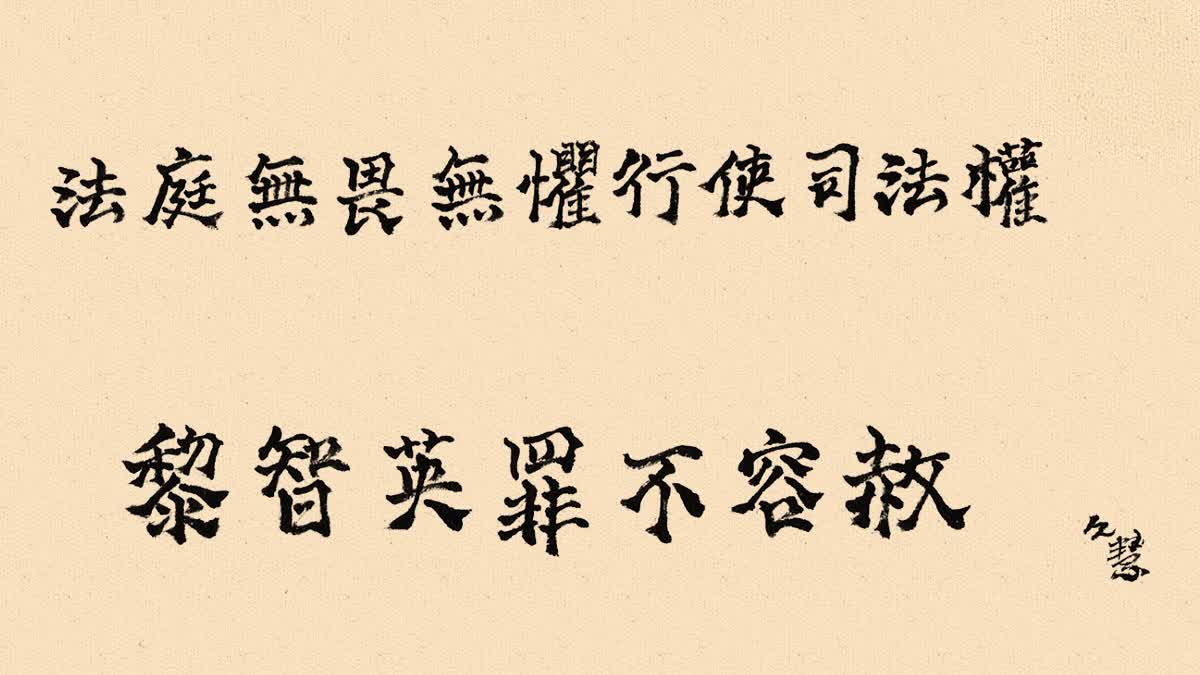 法庭無畏無懼行使司法權
黎智英罪不容赦
久慧